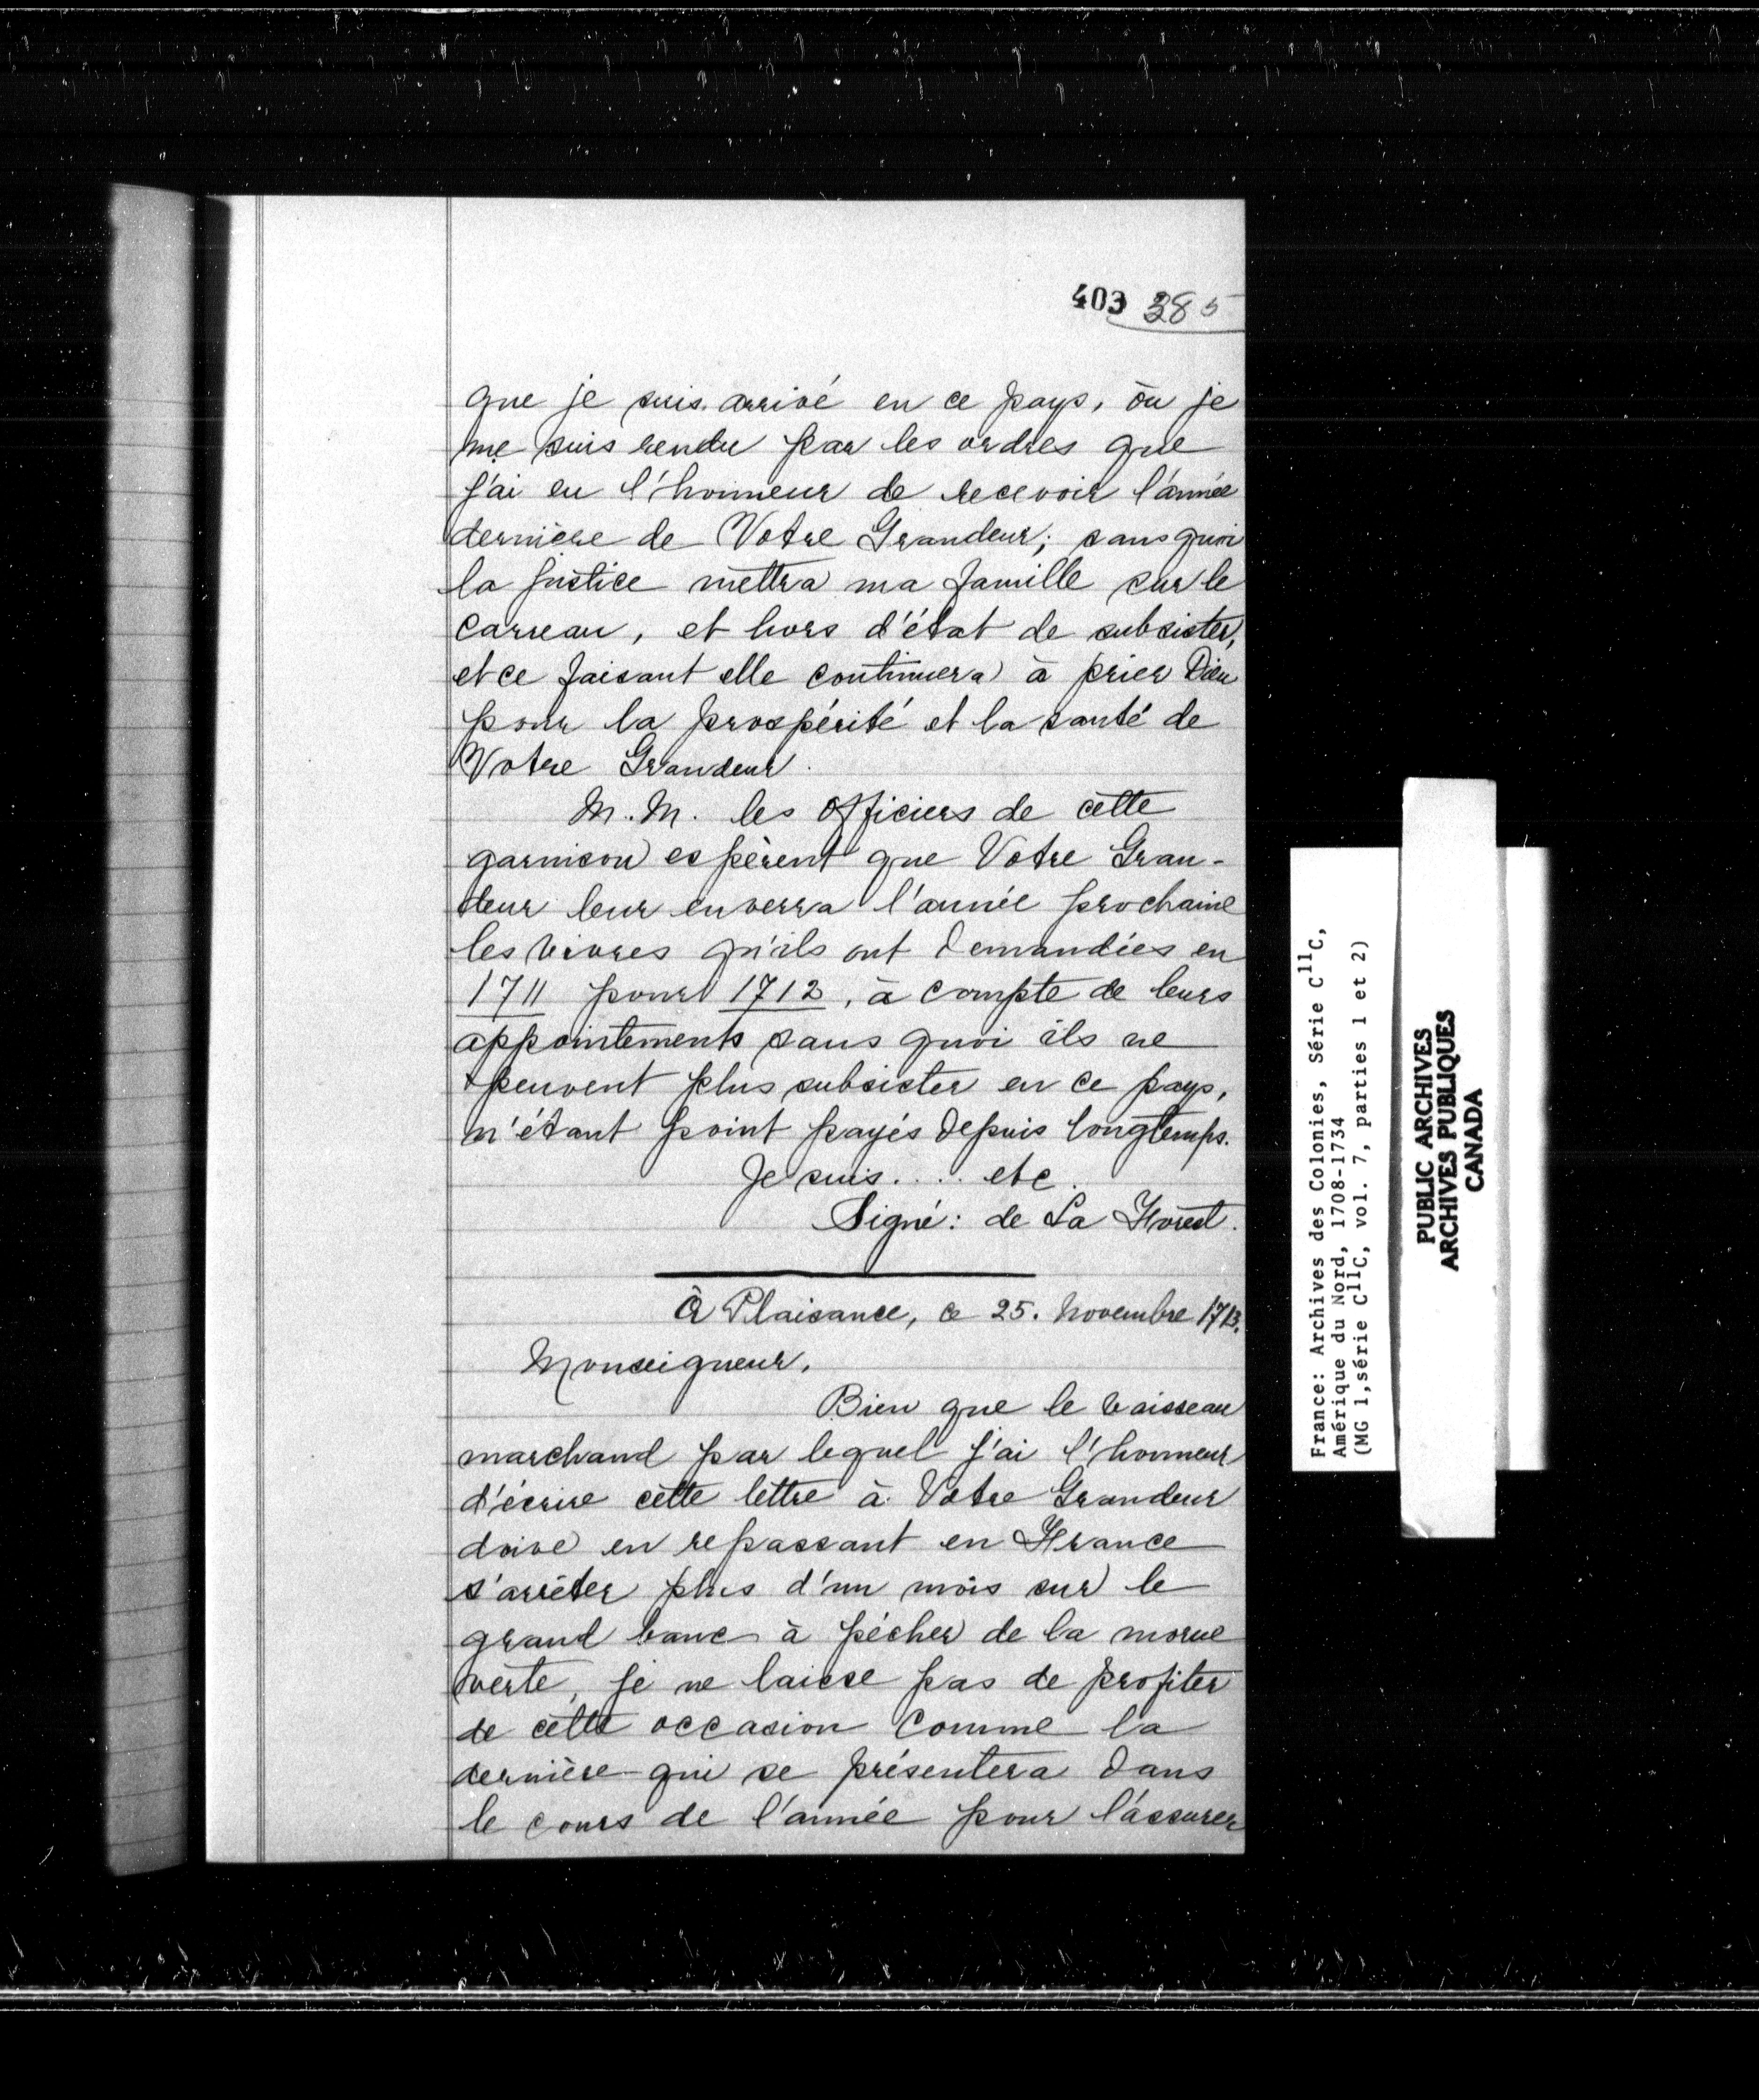 403 385
que je suis arrivé en ce pays, où je
me suis rendu par les ordres que
j'ai eu l'honneur de recevoir l'année
dernière de Votre Grandeur; sans quoi
la justice mettra ma famille sur le
carreau, et hors d'état de subsister,
et ce faisant elle continuera à prier Dieu
pour la prospérité et la santé de
Votre Grandeur.
M.M. les officiers de cette
garnison espèrent que Votre Gran-
deur leur enverra l'année prochaine
les vivres qu'ils ont demandées en
1711 pour 1712, à compte de leurs
appointements sans quoi ils ne
peuvent plus subsister en ce pays,
n'étant point payés depuis longtemps.
Je suis.... etc.
Signé: de La Forest.
À Plaisance, ce 25. Novembre 1713.
Monseigneur,
Bien que le vaisseau
marchand par lequel j'ai l'honneur
d'écrire cette lettre à Votre Grandeur
doive en repassant en France
s'arrêter plus d'un mois sur le
grand banc à pécher de la morue
verte, je ne laisse pas de profiter
de cette occasion comme la
dernière qui se présentera dans
le cours de l'année pour l'assurer
France: Archives des Colonies, Série C11C,
Amérique du Nord, 1708-1734
(MG 1,série C11C, vol. 7, parties 1 et 2)
PUBLIC ARCHIVES
ARCHIVES PUBLIQUES
CANADA